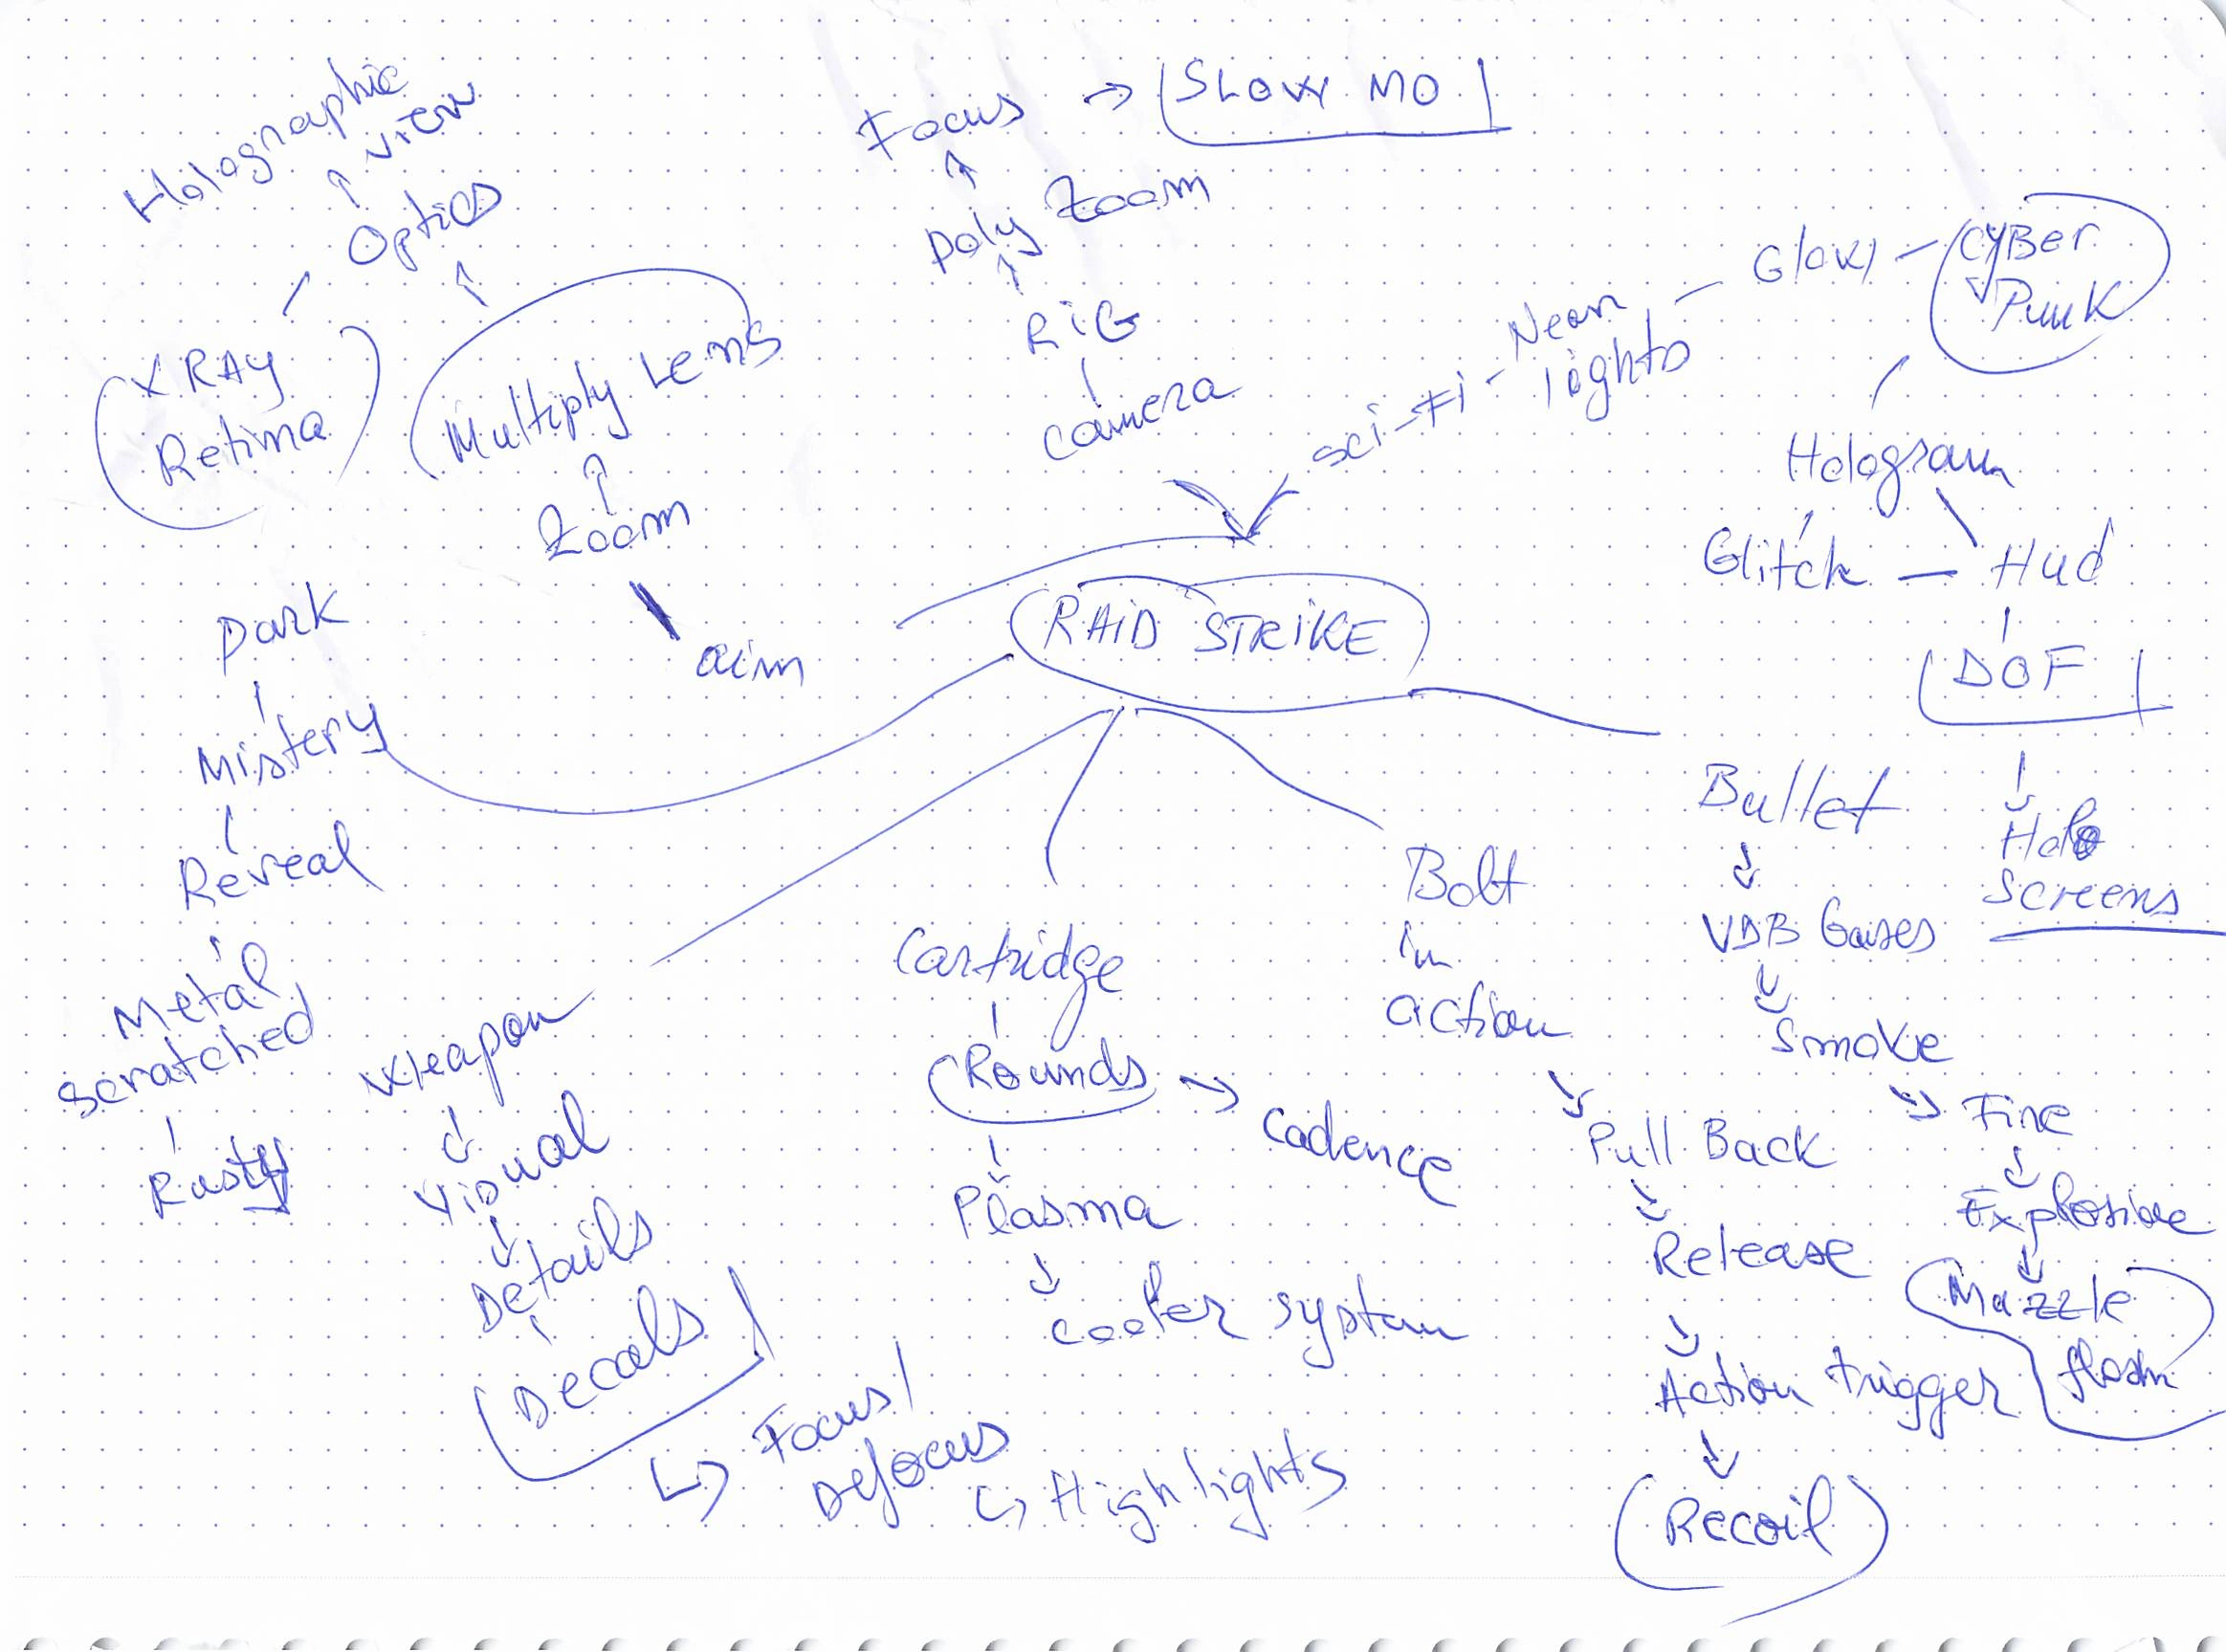 Holographic
view
Optics
X RAY
Retina
Multiply Lens
Zoom
aim
Focus → SLOW MO
Poly Zoom
RiG
camera
sci-Fi - Neon
lights
Glow - CYBer
Punk
Hologram
Glitch - Hud
DOF
Holo
screens
RAiD STRiKE
Dark
Mistery
Reveal
Metal
scratched
Rusty
Weapon
Visual
Details
Decals
Focus/
Defocus
Highlights
Cartridge
Rounds → Cadence
Plasma
cooler system
Bolt
in
action
Pull Back
Release
Action trigger
Recoil
Bullet
VDB Gases
Smoke
Fire
Explosive
Muzzle
flash